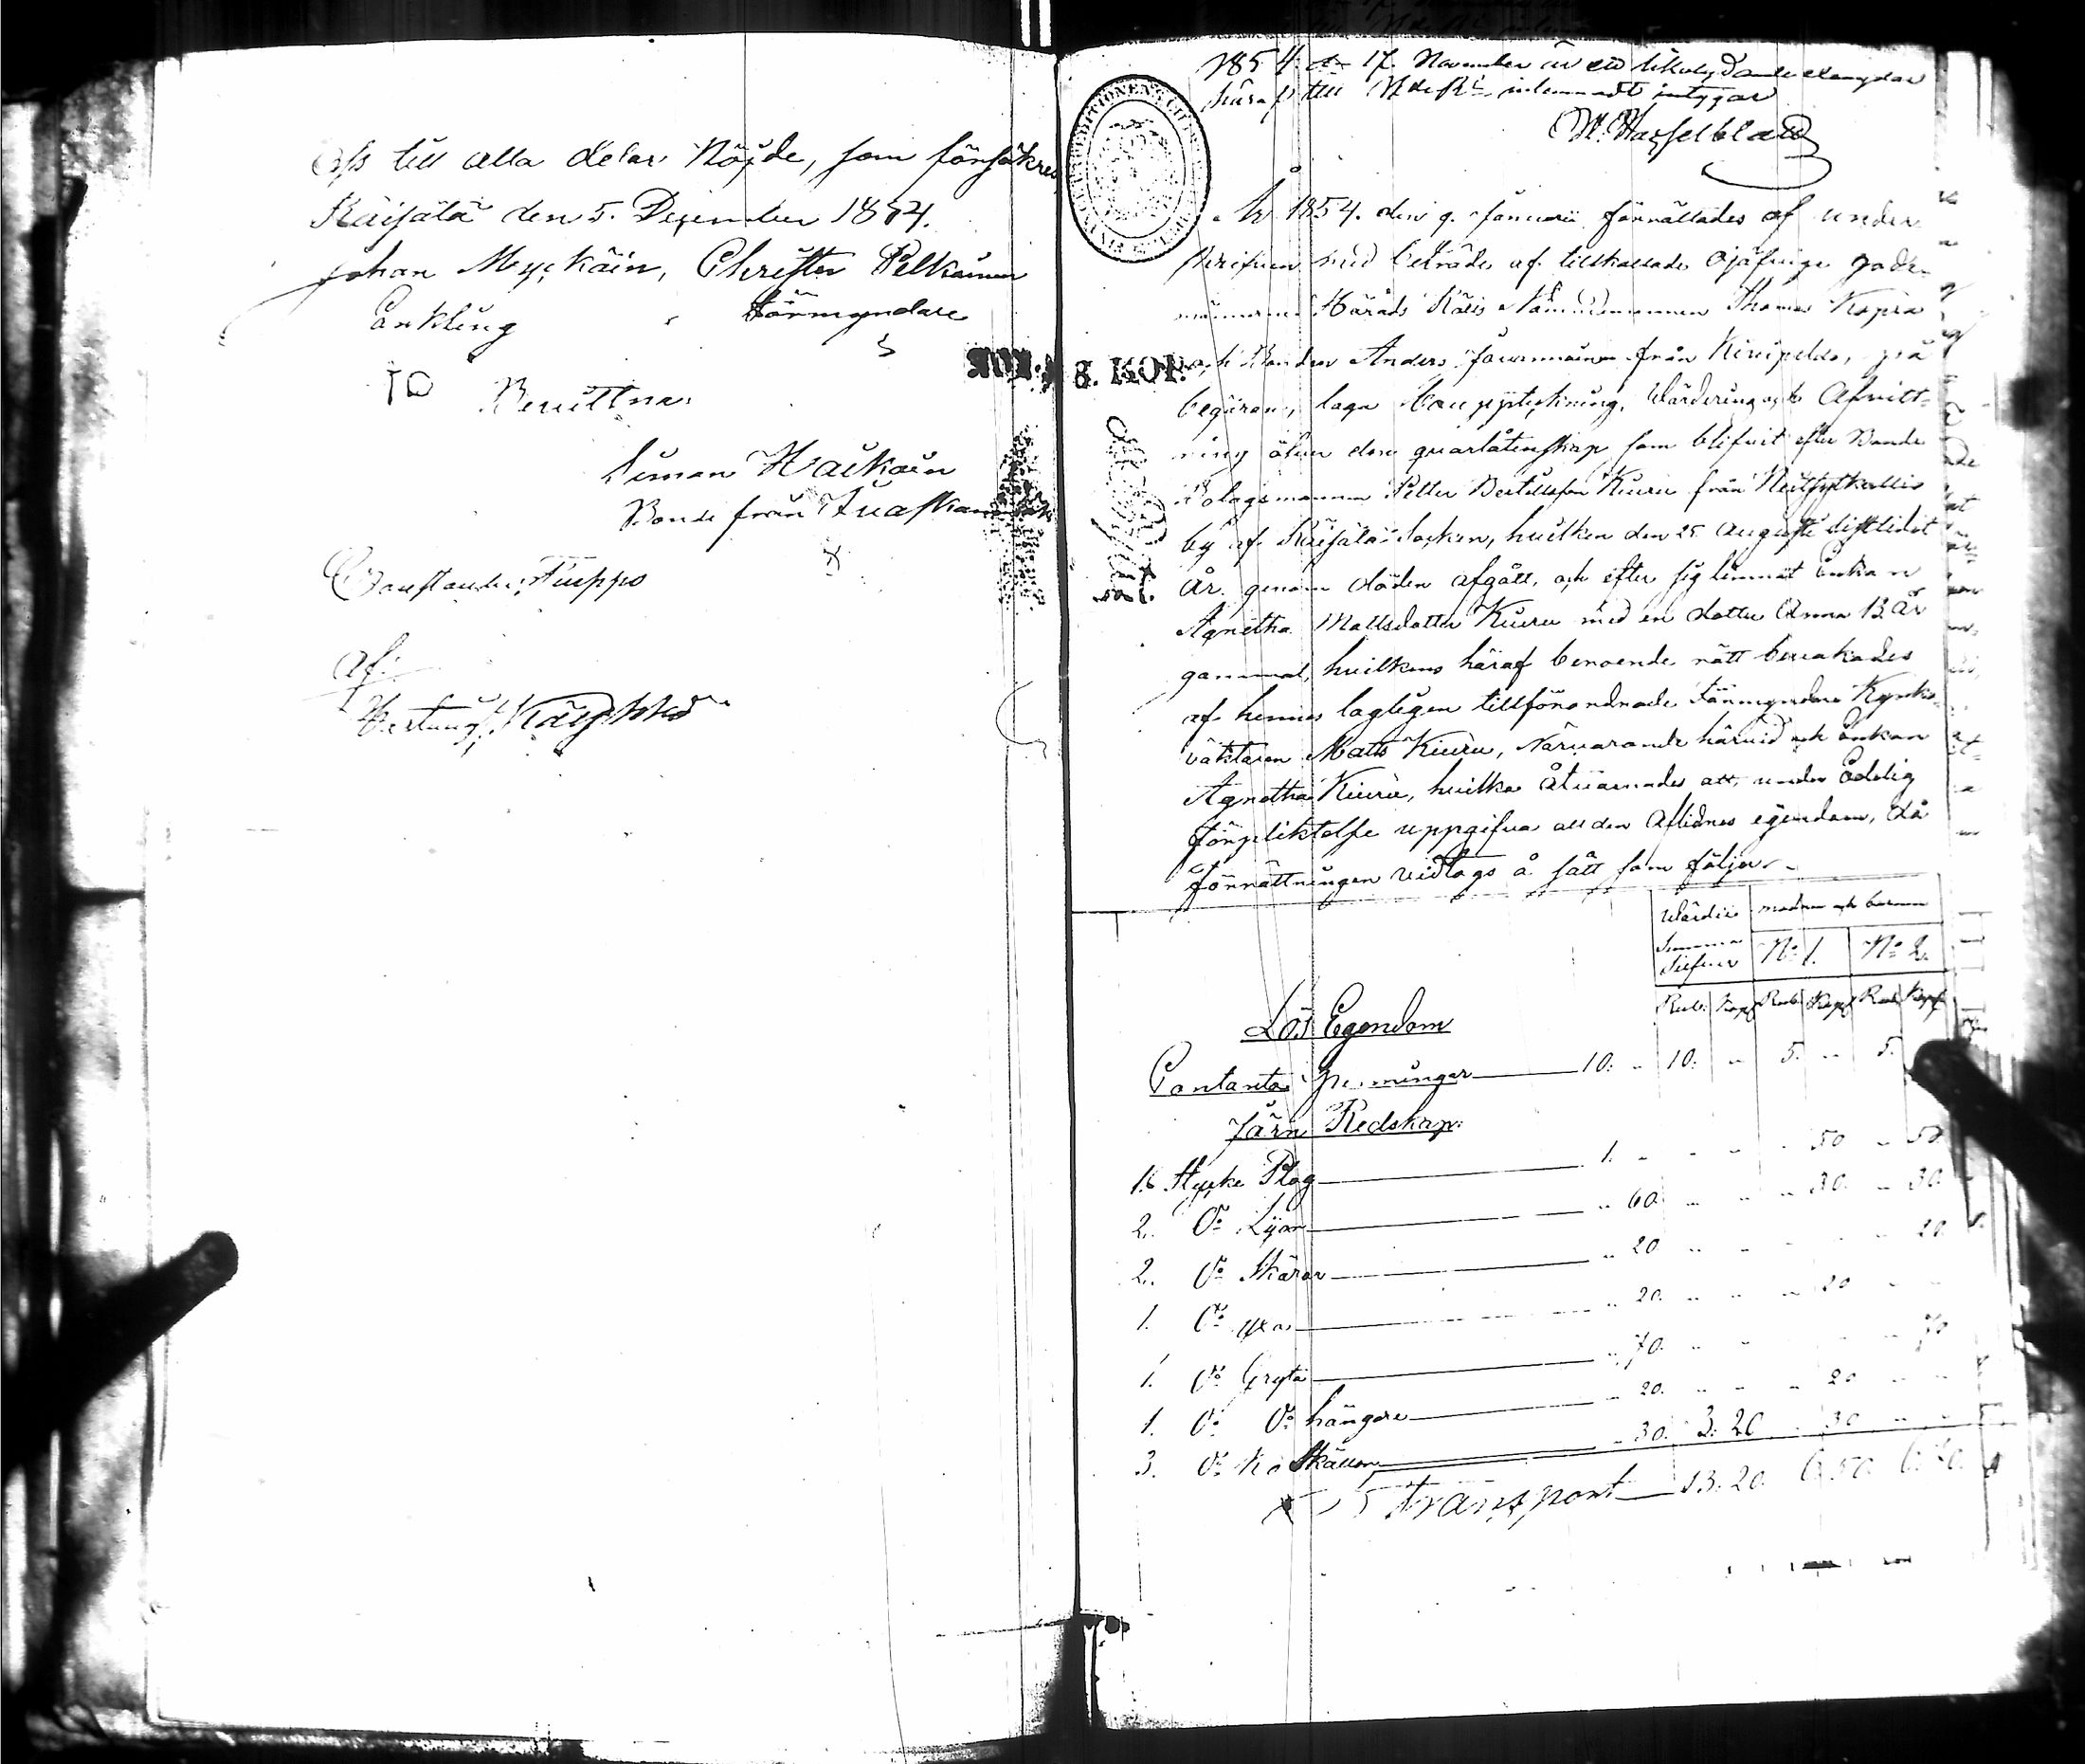 Oss till alla delar Nöjde, som försäkres
Räisälä den 5. December 1854.
Johan Myckäin, Christer Pelkäinen
Enkling Förmyndare
Bevittna:
Simon Haikain
Bonde från
Constander: Puppo
af:
1854 den 17 November är ett likalydande exemplar
häraf till inlemnadt intygar
W. Hasselblad
År 1854. den 9. Januarii förrättades af under
skrifven med biträde af tillkallade ojäfvige gode
männerne Härads Rätts Nämndemannen Thomas Kopra
8. KOP.
och Bonden Anders Jaurmain från Kivipeldo, på
begäran, laga Bouppteckning, Värdering och Afvitt-
ring öfver den qvarlåtenskap som blifvit efter Bonde
Bolagsmannen Petter Bertillsson Kiuru från
by af Räisälä Socken, hvilken den 25 Augusti sistlidit
år genom döden afgått, och efter sig lemnat Enkan
Agnetha Mattsdotter Kiuru med en dotter Anna 13 År
gammal, hvilkens häraf beroende rätt bevakades
af hennes lagligen tillförordnade Förmyndare Kyrko-
väktaren Matts Kiuru, Närvarande härvid och Enkan
Agnetha Kiuru, hvilka åtvarnades att, under Edelig
förpliktelse uppgifva all den Aflidnes egendom, då
förrättningen vidtogs å sätt som följer
Värdie modren och barnen
Summa Silfver No 1. No 2.
Rub. Kop. Rub. Kop. Rub. Kop.
Lös Egendom
Contanta Penningar 10. " 10. " 5. " 5.
Järn Redskap:
1. Stycke Plog 1. " " " " 50 " 50
2. Do Lijar " 60. " " " 30. " 30.
2. Do Skäror " 20 " " " " " 20.
1. Do yxa " 20. " " " 20 " "
1. Do Gryta " 70. " " " " " 70
1. Do Do hängare " 20. " " " 20 " "
3. Do Ko Skällor " 30. 3. 20 " 30 " "
Transport 13. 20. 6. 50. 6. 70.